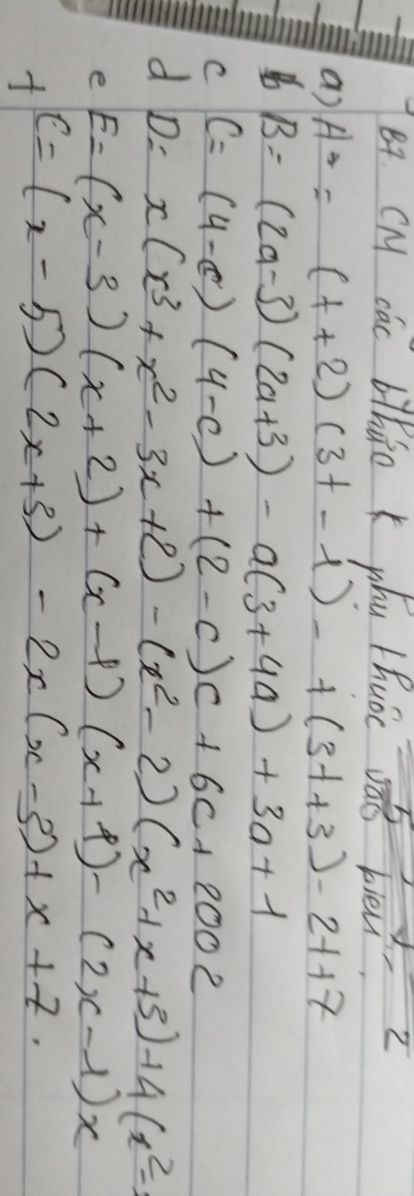 B7. CM các bthức k phụ thuộc vào biến
a) A = (t+2)(3t-1) - t(3t+3) - 2t+7
b B = (2a-3)(2a+3) - a(3+4a) + 3a+1
c C = (4-c)(4-c) + (2-c)c + 6c + 2002
d D = x(x³+x²-3x+2) - (x²-2)(x²+x+3) + 4(x²-
e E = (x-3)(x+2) + (x-1)(x+1) - (2x-1)x
f C = (x-5)(2x+3) - 2x(x-3) + x + 7.